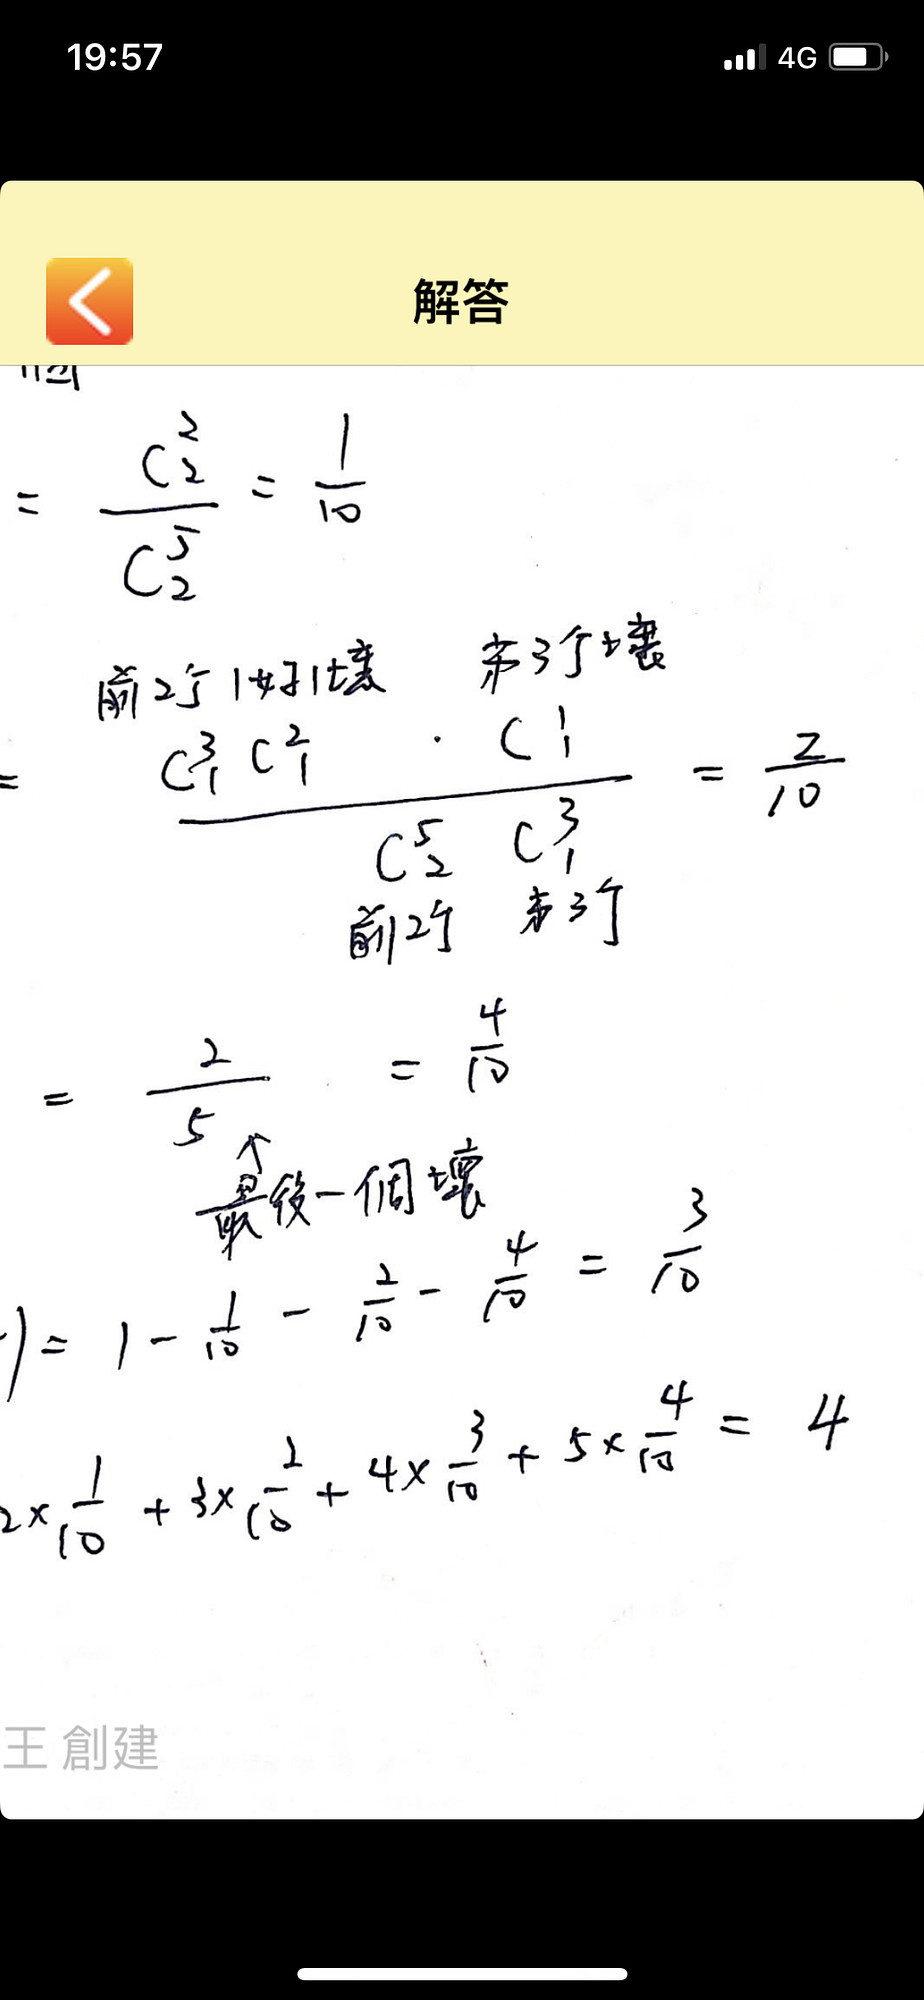 19:57 4G
解答
個
= C²₂ / C⁵₂ = 1/10
前2个1好1壞 第3个壞
= C³₁ C²₁ · C¹₁ / C⁵₂ C³₁ = 2/10
前2个 第3个
= 2/5 = 4/10
↑
最後一個壞
) = 1 - 1/10 - 2/10 - 4/10 = 3/10
2 × 1/10 + 3 × 2/10 + 4 × 3/10 + 5 × 4/10 = 4
王 創建